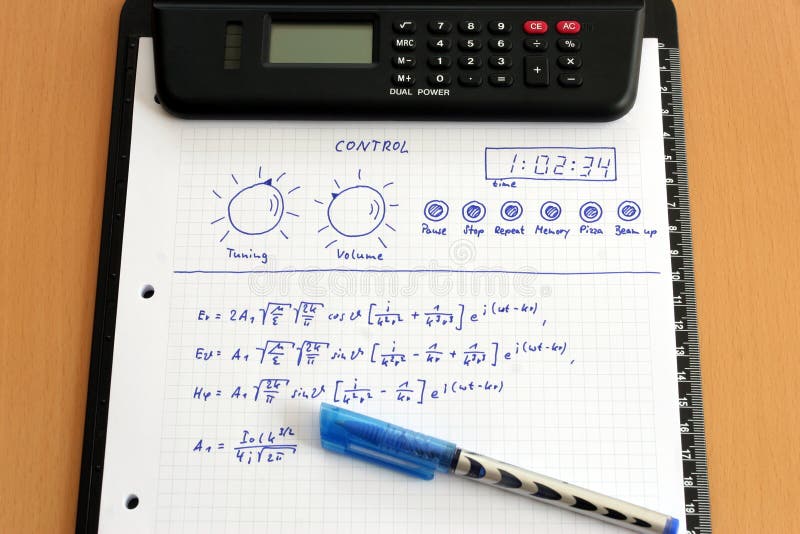 √ 7 8 9 CE AC
MRC 4 5 6 ÷ %
M- 1 2 3 + ×
M+ 0 . = -
DUAL POWER
CONTROL
1:02:34
time
Tuning Volume Pause Stop Repeat Memory Pizza Beam up
Er = 2A₁ √(μ/ε) √(2k/π) cos ϑ [i/(k²r²) + 1/(k³r³)] e^{i(ωt-kr)},
Eϑ = A₁ √(μ/ε) √(2k/π) sin ϑ [i/(k²r²) - 1/(kr) + 1/(k³r³)] e^{i(ωt-kr)},
Hφ = A₁ √(2k/π) sin ϑ [i/(k²r²) - 1/(kr)] e^{i(ωt-kr)}
A₁ = I₀lk^{3/2} / (4i√(2π))
dreamstime